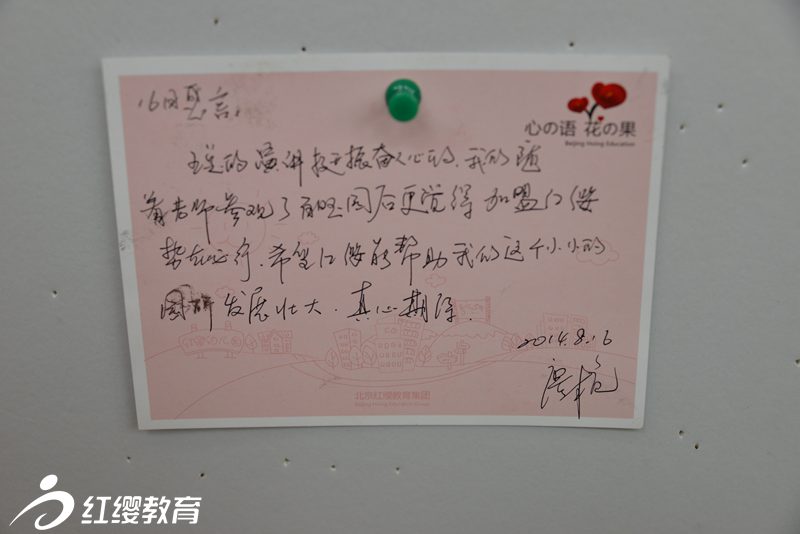 16日感言:
王总的演讲挺振奋人心的,我们随
着老师参观了百旺园后更觉得加盟红缨
势在必行.希望红缨能帮助我们这个小小的
园所发展壮大.真心期待.
2014.8.16
心の语 花の果
Beijing Hoing Education
北京红缨教育集团
Beijing Hoing Education Group
红缨教育